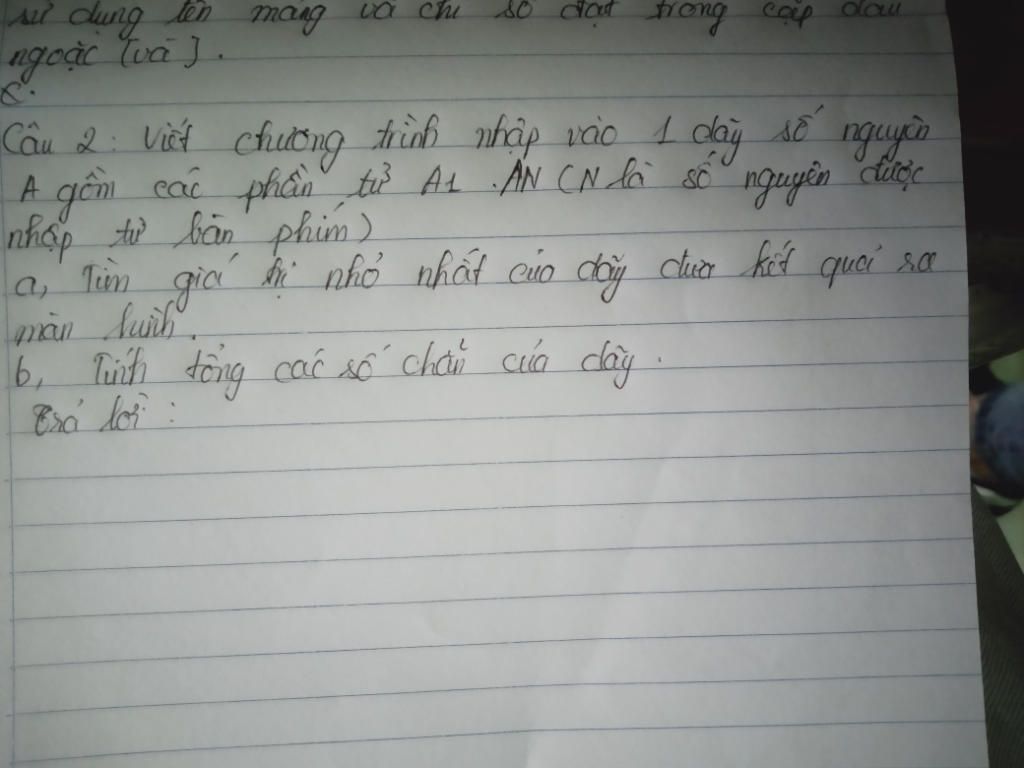 sử dụng tên mảng và chỉ số đặt trong cặp dấu
ngoặc [và].
C.
Câu 2: Viết chương trình nhập vào 1 dãy số nguyên
A gồm các phần tử A1..AN (N là số nguyên được
nhập từ bàn phím)
a, Tìm giá trị nhỏ nhất của dãy đưa kết quả ra
màn hình.
b, Tính tổng các số chẵn của dãy.
trả lời: